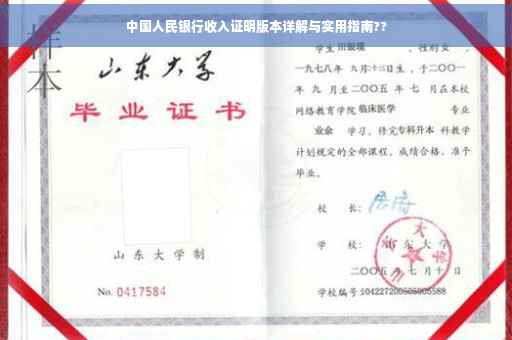 中国人民银行收入证明版本详解与实用指南??
样本
山东大学
毕业证书
山东大学制
No. 0417584
学生 田银暖 ，性别 女 ，
一九七八年 九月十三日生，于二〇〇一
年 九 月至二〇〇五 年 七 月在本校
网络教育学院 临床医学 专业
业余 学习，修完专科升本 科教学
计划规定的全部课程，成绩合格，准予
毕业。
校 长：
学 校： 山东大学
二〇〇五 年 七 月 十 日
学校编号:104227200505005588